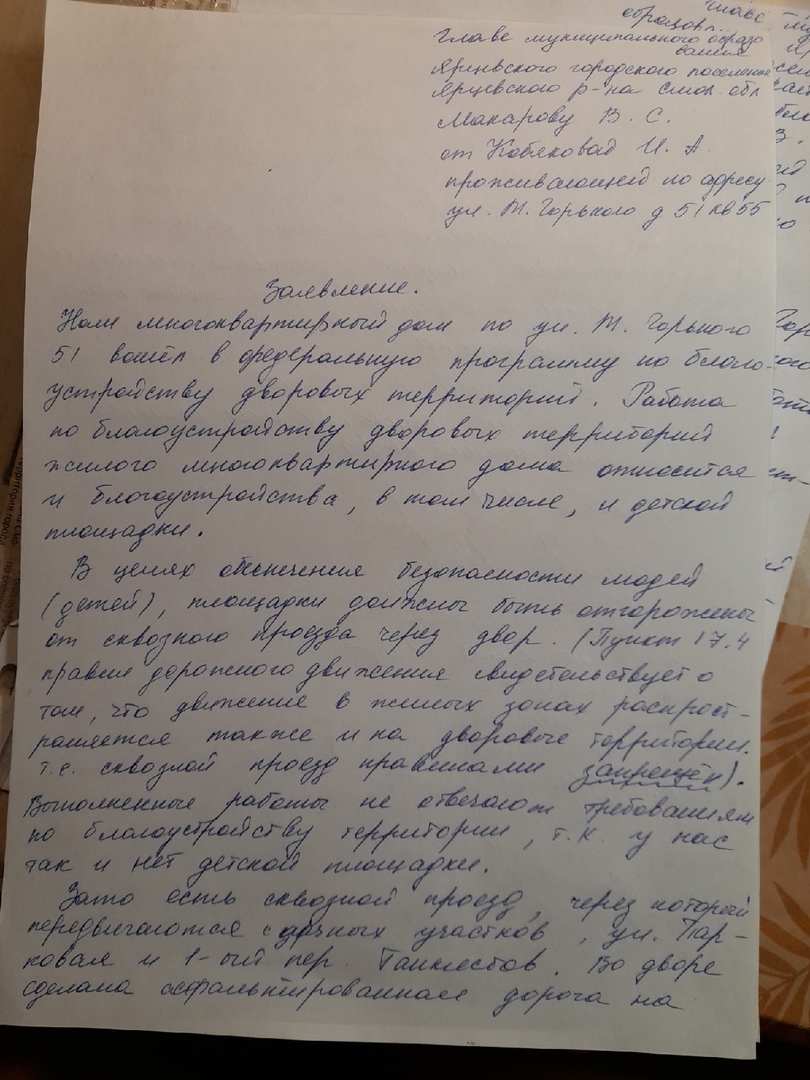 Главе муниципального образо
вания
Ярцевского городского поселения
Ярцевского р-на Смол. обл
Макарову В. С.
от Кобяковой И. А.
проживающей по адресу
ул. М. Горького д 51 кв 55
Заявление.
Наш многоквартирный дом по ул. М. Горького
51 вошёл в федеральную программу по благо-
устройству дворовых территорий. Работа
по благоустройству дворовых территорий
жилого многоквартирного дома относится
и благоустройства, в том числе, и детской
площадки.
В целях обеспечения безопасности людей
(детей), площадки должны быть отгорожены
от сквозного проезда через двор. (Пункт 17.4
правил дорожного движения свидетельствует о
том, что движение в жилых зонах распрост-
раняется также и на дворовые территории.
т.е. сквозной проезд правилами запрещён).
Выполненные работы не отвечают требованиям
по благоустройству территории, т.к. у нас
так и нет детской площадки.
Зато есть сквозной проезд, через который
передвигаются с дачных участков, ул. Пар-
ковая и 1-ый пер. Танкистов. Во дворе
сделана асфальтированная дорога на